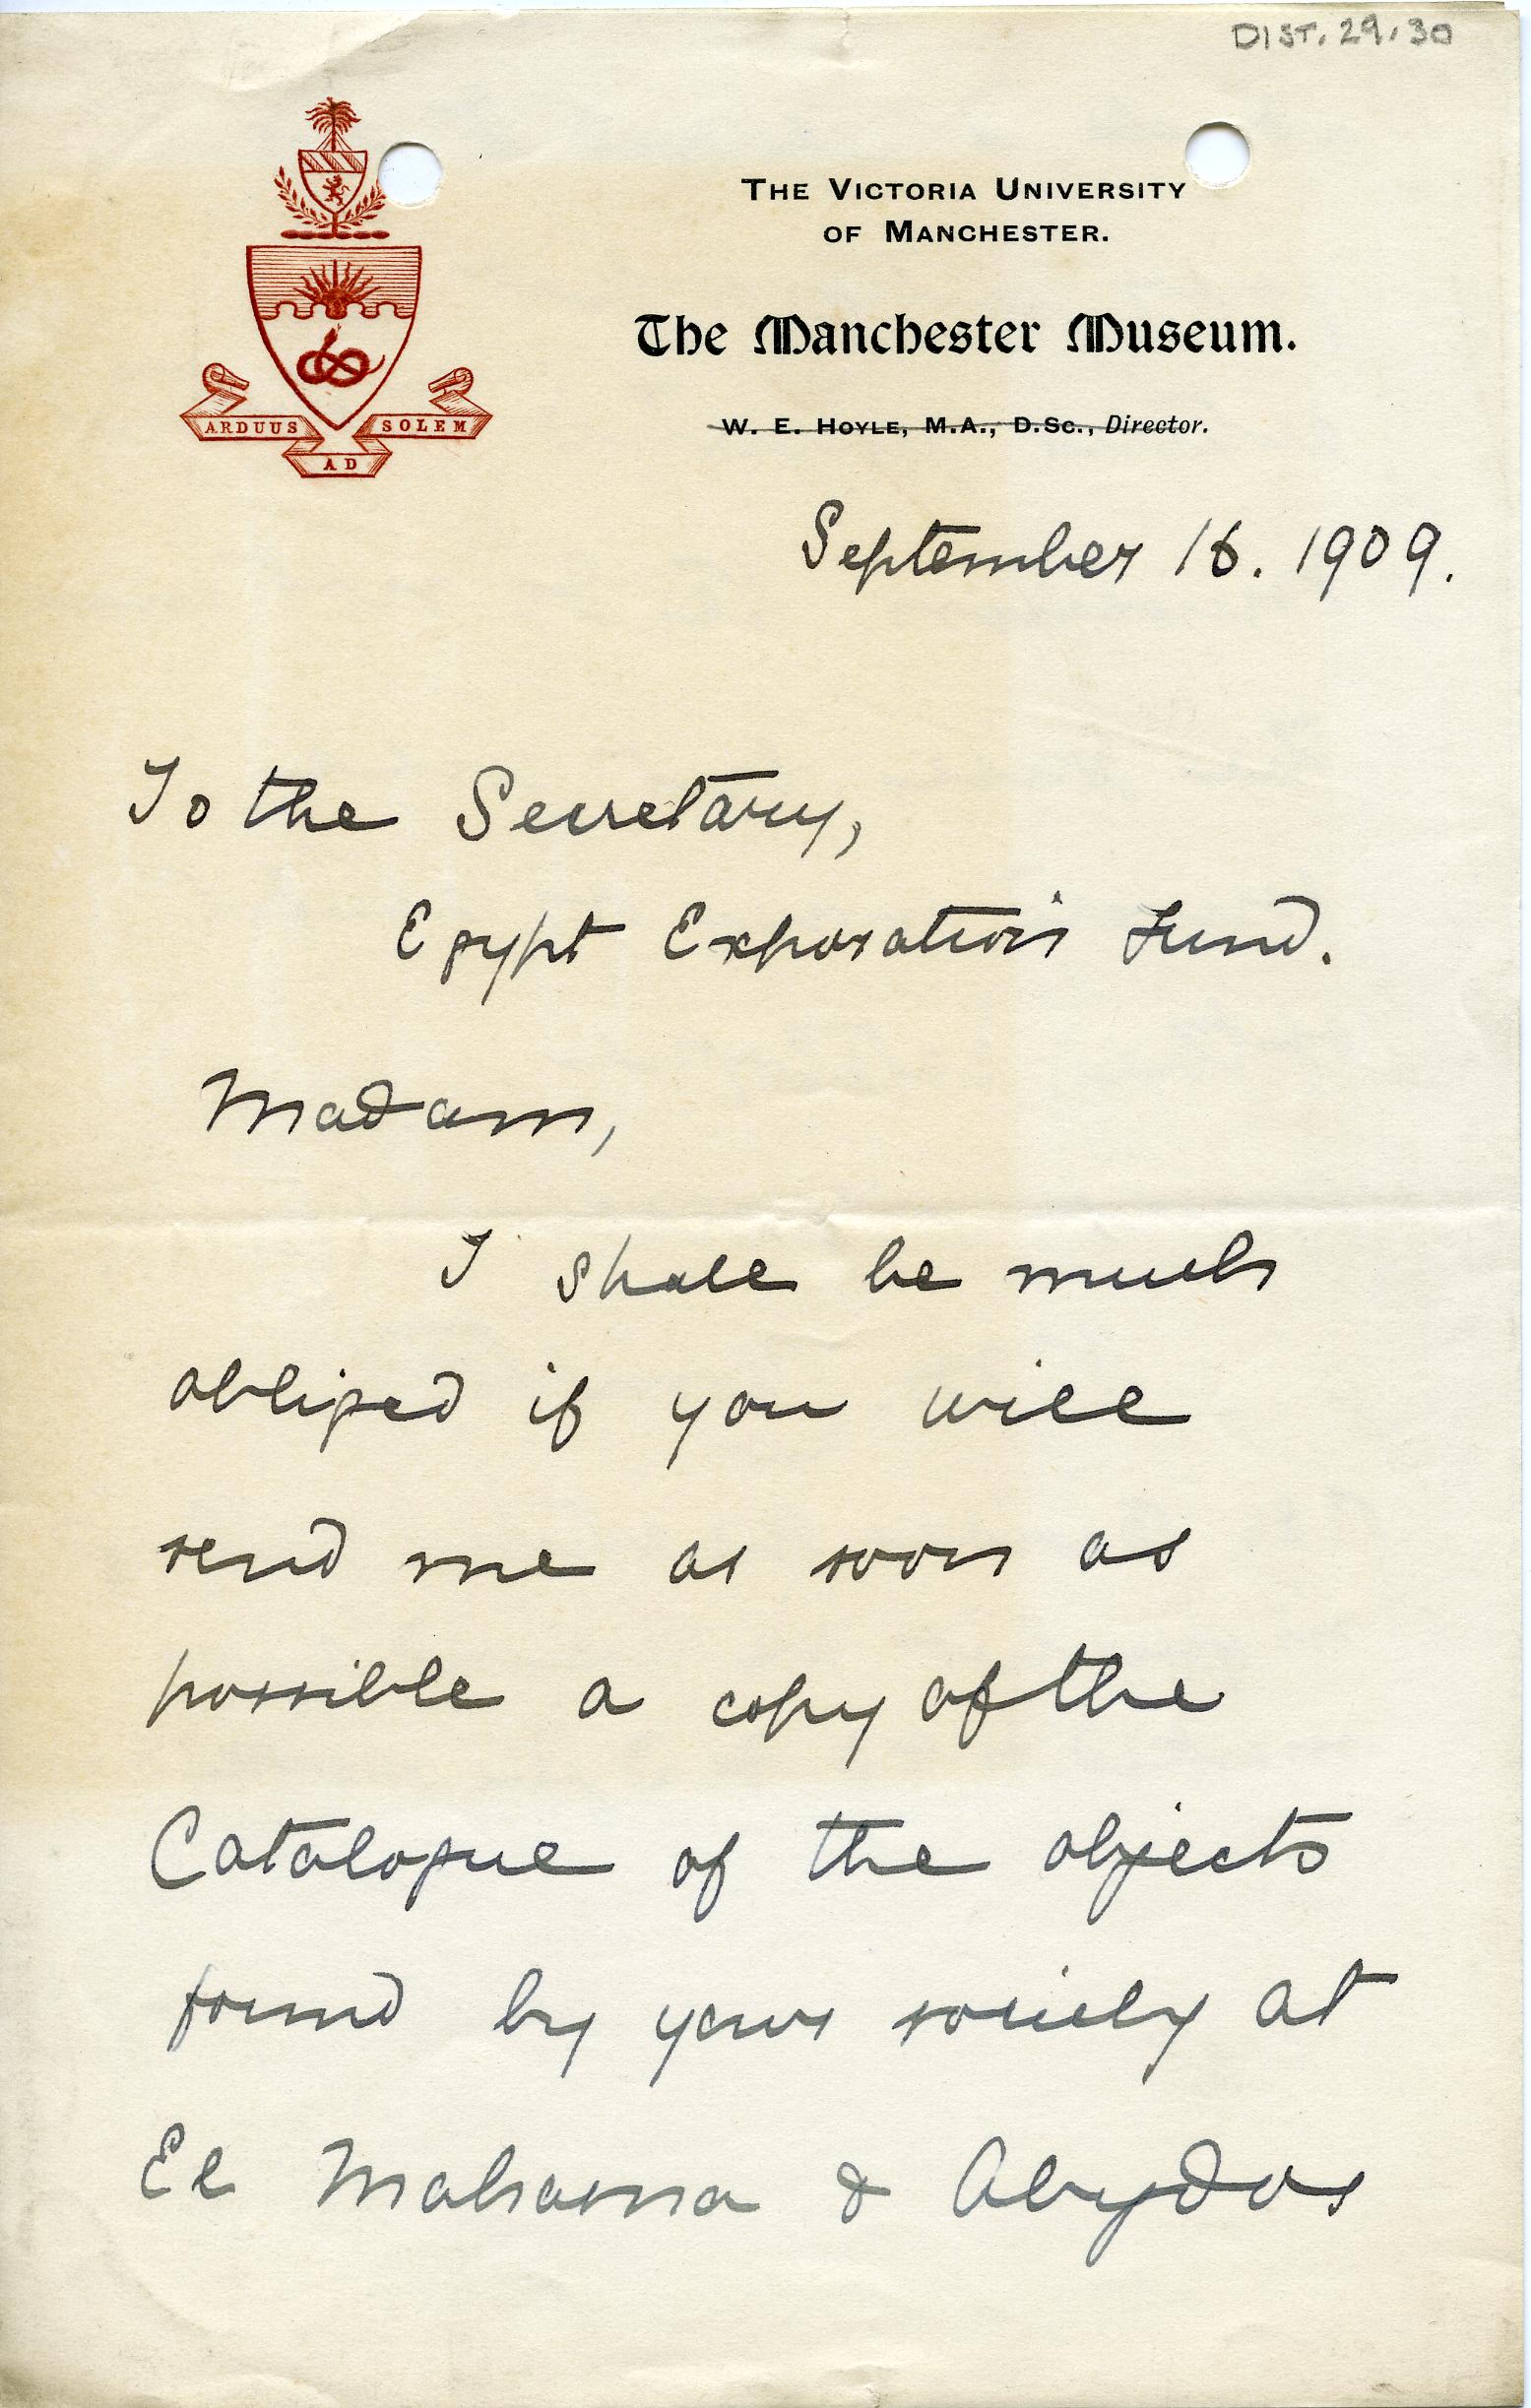 DIST. 29.30
THE VICTORIA UNIVERSITY
OF MANCHESTER.
The Manchester Museum.
W. E. HOYLE, M.A., D.Sc., Director.
ARDUUS AD SOLEM
September 16. 1909.
To the Secretary,
Egypt Exporation Fund.
Madam,
I shall be much
obliged if you will
send me as soon as
possible a copy of the
Catalogue of the objects
found by your society at
El Mahasna & Abydos